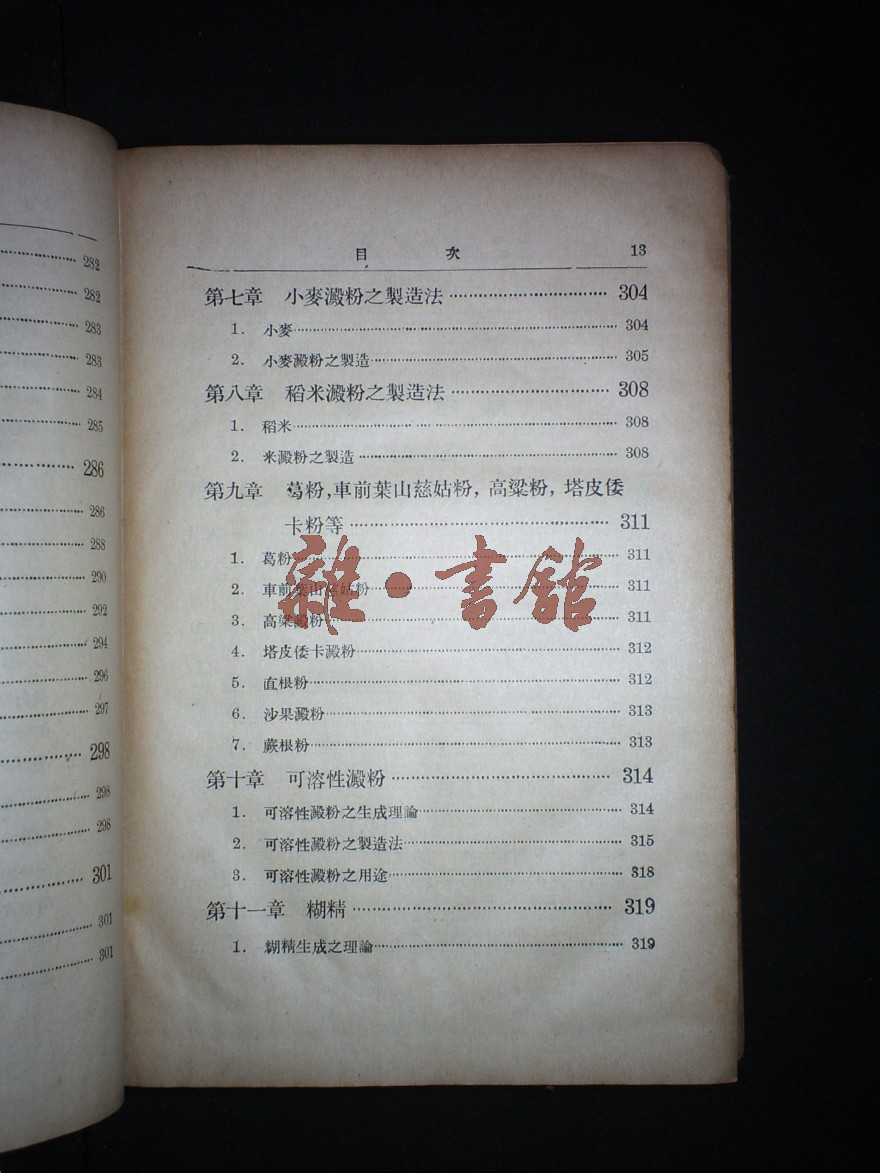 282
282
283
283
284
285
286
286
288
290
292
294
296
297
298
298
298
301
301
301
目 次 13
第七章 小麥澱粉之製造法 304
1. 小麥 304
2. 小麥澱粉之製造 305
第八章 稻米澱粉之製造法 308
1. 稻米 308
2. 米澱粉之製造 308
第九章 葛粉,車前葉山慈姑粉,高粱粉,塔皮倭
卡粉等 311
1. 葛粉 311
2. 車前葉山慈姑粉 311
3. 高粱澱粉 311
4. 塔皮倭卡澱粉 312
5. 直根粉 312
6. 沙果澱粉 313
7. 蕨根粉 313
第十章 可溶性澱粉 314
1. 可溶性澱粉之生成理論 314
2. 可溶性澱粉之製造法 315
3. 可溶性澱粉之用途 318
第十一章 糊精 319
1. 糊精生成之理論 319
雜·書館